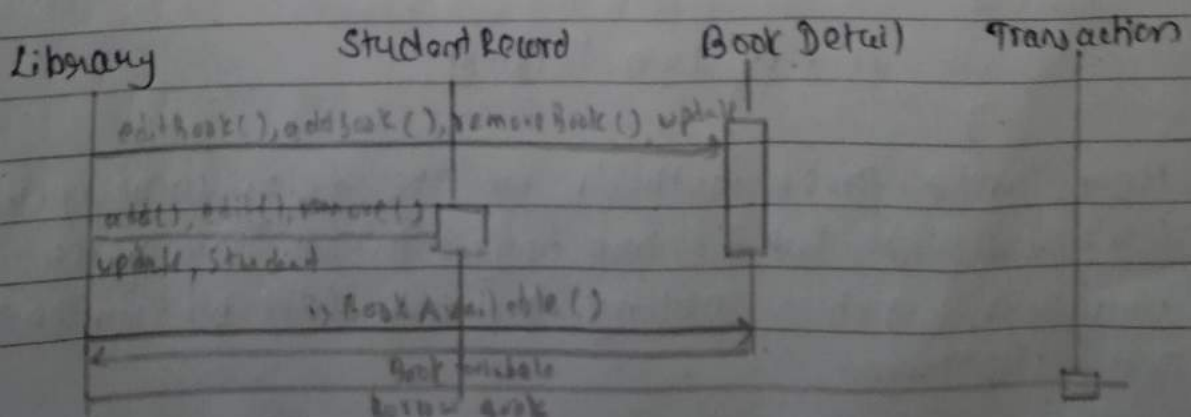 Library Student Record Book Detail Transaction
editBook(), addBook(), removeBook() update
add(), edit(), remove()
update, Student
is Book Available()
Book
Book